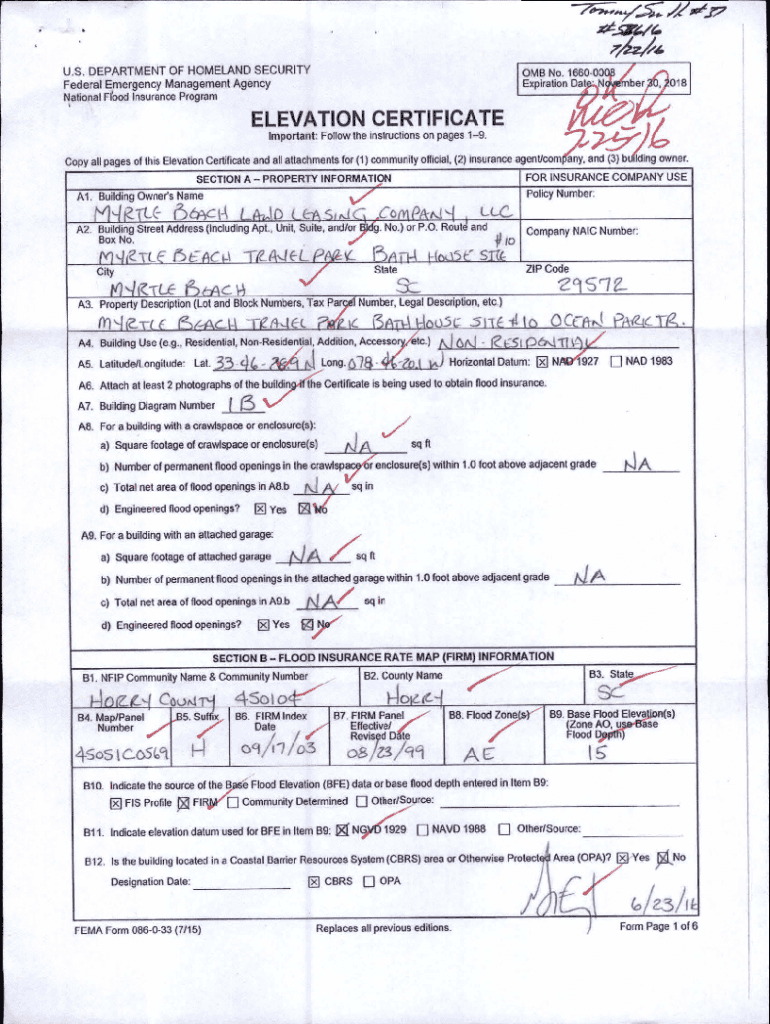 Tommy Smith #37
7/22/16
U.S. DEPARTMENT OF HOMELAND SECURITY
Federal Emergency Management Agency
National Flood Insurance Program
OMB No. 1660-0008
Expiration Date: November 30, 2018
OK
7-25-16
ELEVATION CERTIFICATE
Important: Follow the instructions on pages 1–9.
Copy all pages of this Elevation Certificate and all attachments for (1) community official, (2) insurance agent/company, and (3) building owner.
SECTION A – PROPERTY INFORMATION
FOR INSURANCE COMPANY USE
A1. Building Owner's Name
MYRTLE BEACH LAND LEASING COMPANY, LLC
Policy Number:
A2. Building Street Address (including Apt., Unit, Suite, and/or Bldg. No.) or P.O. Route and
Box No.
#10
MYRTLE BEACH TRAVEL PARK BATH HOUSE SITE
Company NAIC Number:
City State ZIP Code
MYRTLE BEACH SC 29572
A3. Property Description (Lot and Block Numbers, Tax Parcel Number, Legal Description, etc.)
MYRTLE BEACH TRAVEL PARK BATH HOUSE SITE #10 OCEAN PARK TR.
A4. Building Use (e.g., Residential, Non-Residential, Addition, Accessory, etc.) NON-RESIDENTIAL
A5. Latitude/Longitude: Lat. 33-46-269 N Long. 078-46-201 W Horizontal Datum: ☒ NAD 1927 ☐ NAD 1983
A6. Attach at least 2 photographs of the building if the Certificate is being used to obtain flood insurance.
A7. Building Diagram Number 1B
A8. For a building with a crawlspace or enclosure(s):
a) Square footage of crawlspace or enclosure(s) NA sq ft
b) Number of permanent flood openings in the crawlspace or enclosure(s) within 1.0 foot above adjacent grade NA
c) Total net area of flood openings in A8.b NA sq in
d) Engineered flood openings? ☒ Yes ☒ No
A9. For a building with an attached garage:
a) Square footage of attached garage NA sq ft
b) Number of permanent flood openings in the attached garage within 1.0 foot above adjacent grade NA
c) Total net area of flood openings in A9.b NA sq in
d) Engineered flood openings? ☒ Yes ☒ No
SECTION B – FLOOD INSURANCE RATE MAP (FIRM) INFORMATION
B1. NFIP Community Name & Community Number
HORRY COUNTY 450104
B2. County Name
HORRY
B3. State
SC
B4. Map/Panel
Number
45051C0569
B5. Suffix
H
B6. FIRM Index
Date
09/17/03
B7. FIRM Panel
Effective/
Revised Date
08/23/99
B8. Flood Zone(s)
AE
B9. Base Flood Elevation(s)
(Zone AO, use Base
Flood Depth)
15
B10. Indicate the source of the Base Flood Elevation (BFE) data or base flood depth entered in Item B9:
☒ FIS Profile ☒ FIRM ☐ Community Determined ☐ Other/Source:
B11. Indicate elevation datum used for BFE in Item B9: ☒ NGVD 1929 ☐ NAVD 1988 ☐ Other/Source:
B12. Is the building located in a Coastal Barrier Resources System (CBRS) area or Otherwise Protected Area (OPA)? ☒ Yes ☒ No
Designation Date: ☒ CBRS ☐ OPA
6/23/16
FEMA Form 086-0-33 (7/15) Replaces all previous editions. Form Page 1 of 6